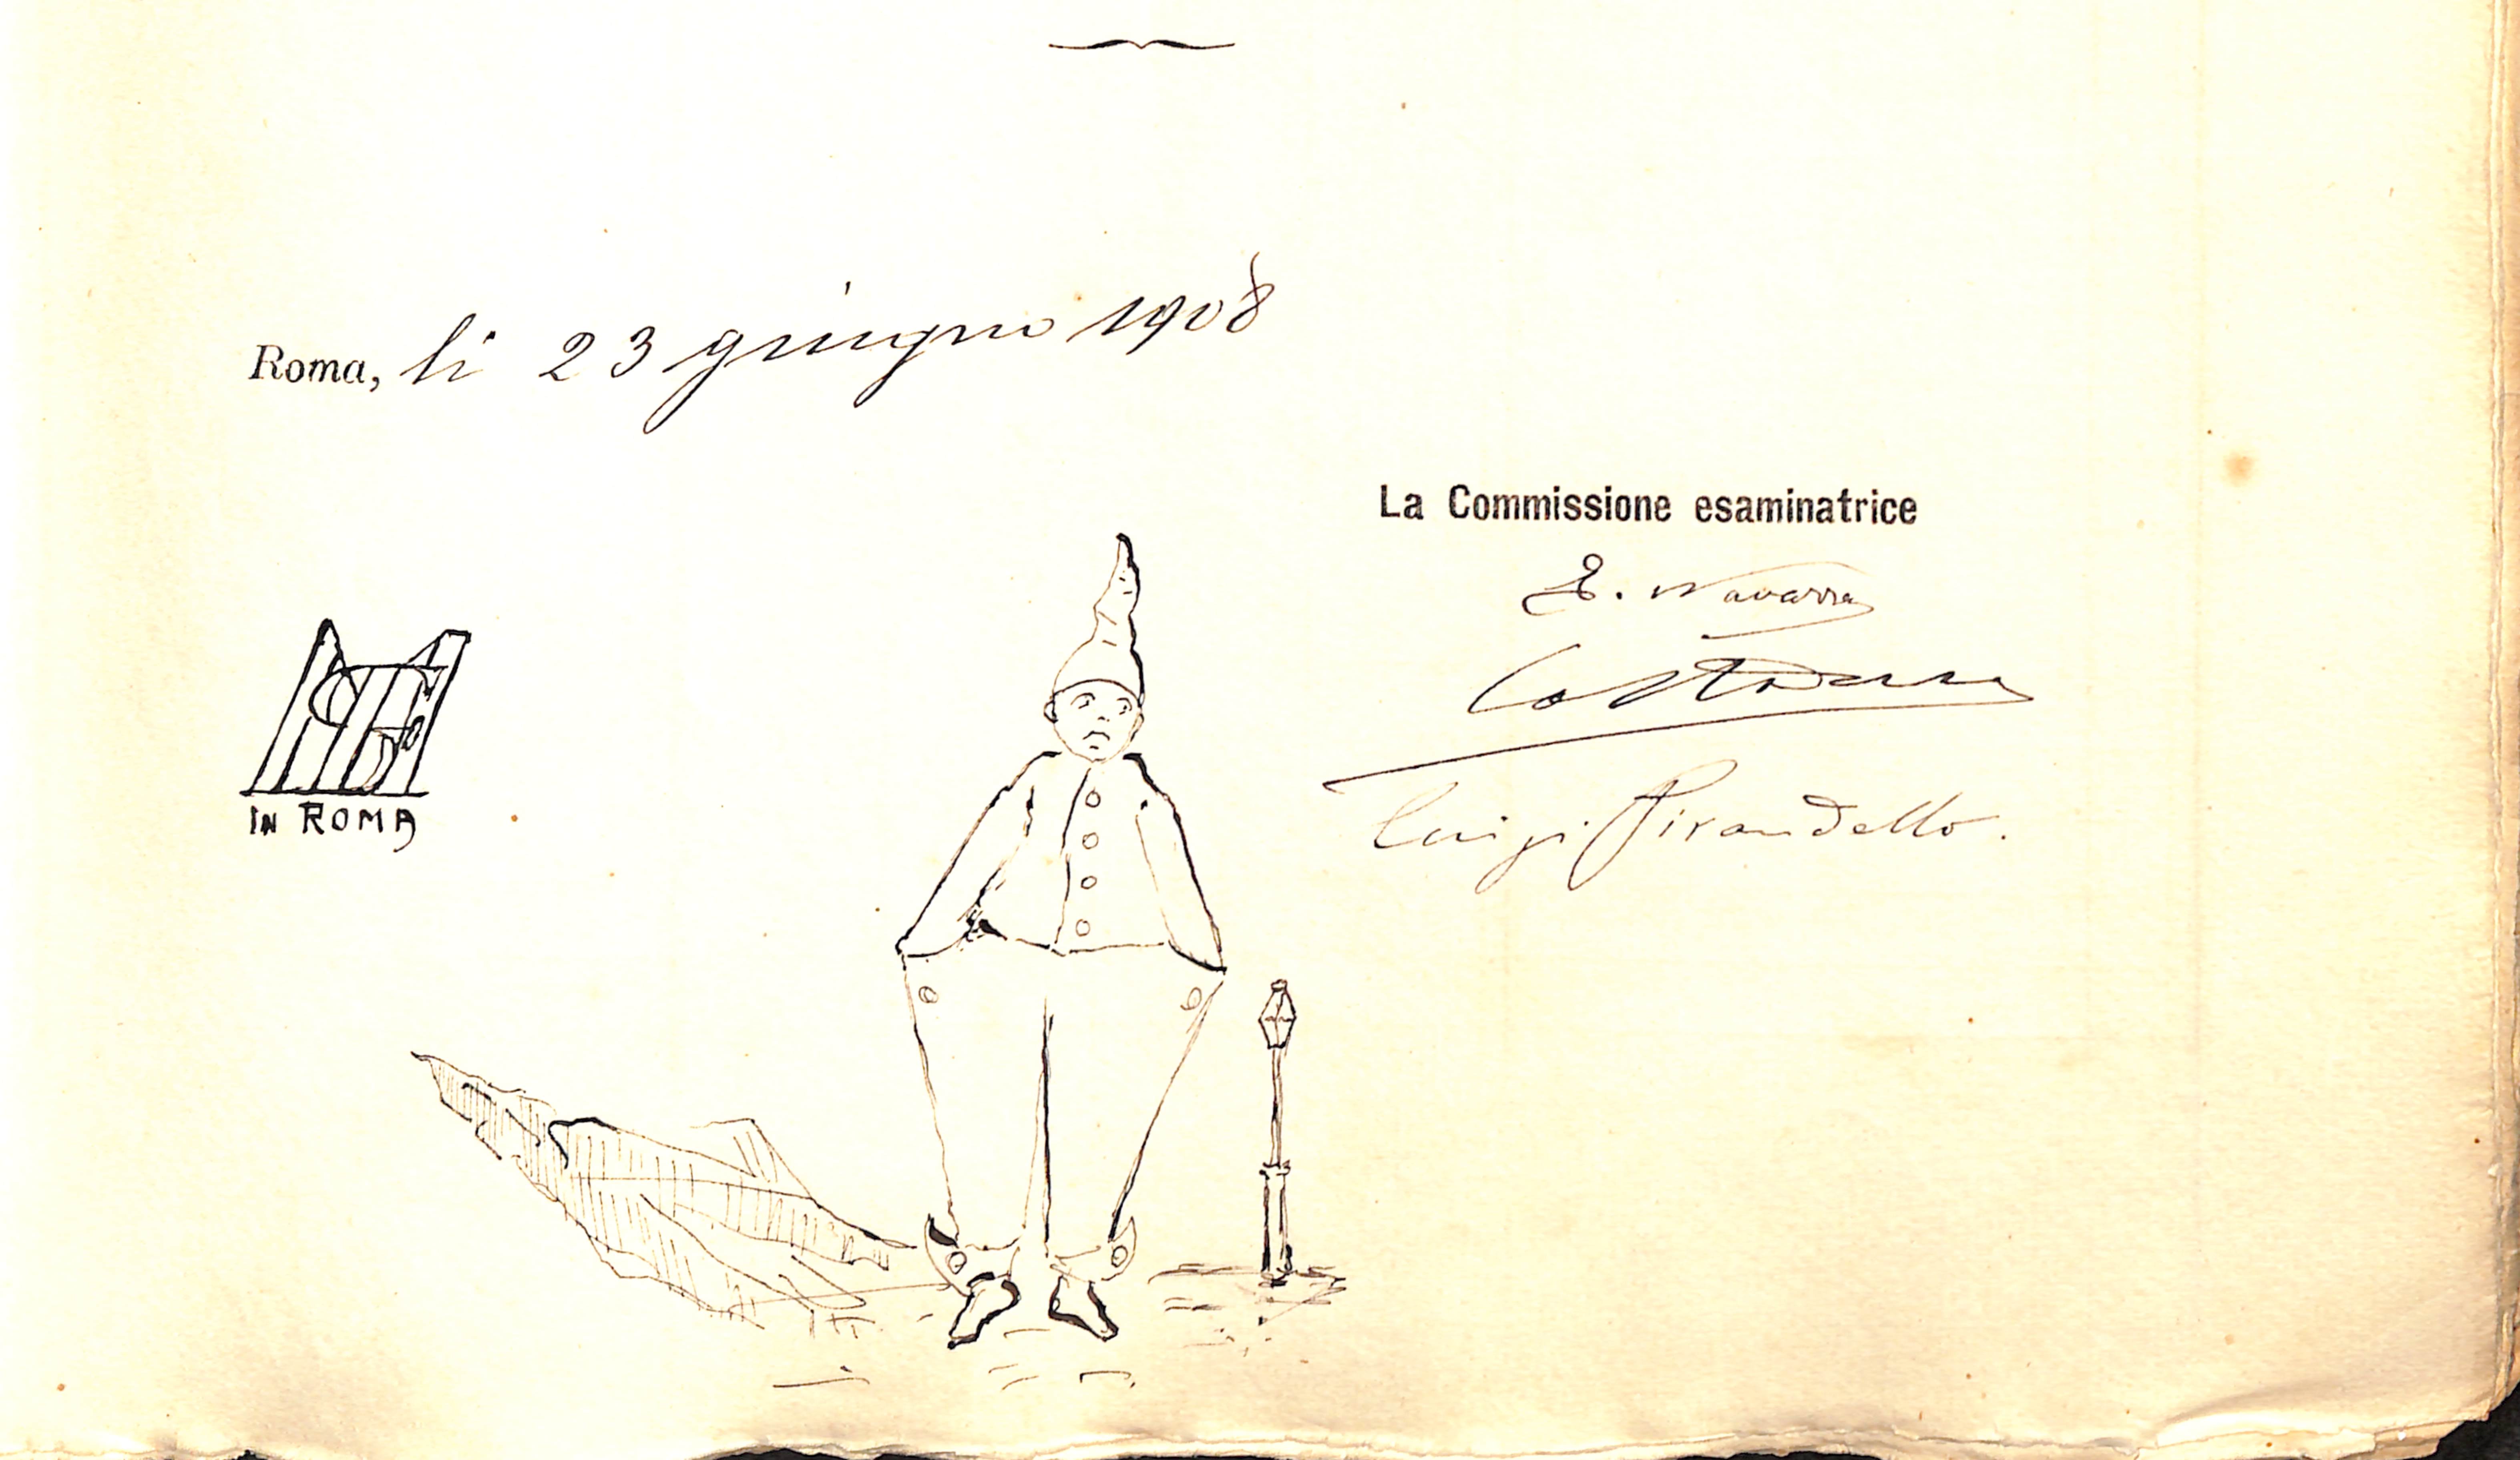 Roma, li 23 giugno 1908
La Commissione esaminatrice
E. Navarra
Luigi Pirandello.
IN ROMA